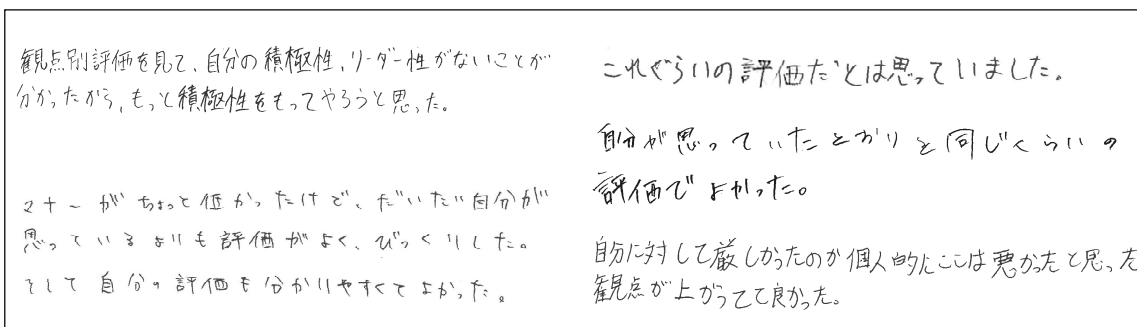 観点別評価を見て、自分の積極性、リーダー性がないことが
分かったから、もっと積極性をもってやろうと思った。
マナーがちょっと低かったけど、だいたい自分が
思っているよりも評価がよく、びっくりした。
そして自分の評価も分かりやすくてよかった。
これぐらいの評価だとは思っていました。
自分が思っていたとおりと同じくらいの
評価でよかった。
自分に対して厳しかったのか個人的にここは悪かったと思った
観点が上がってて良かった。